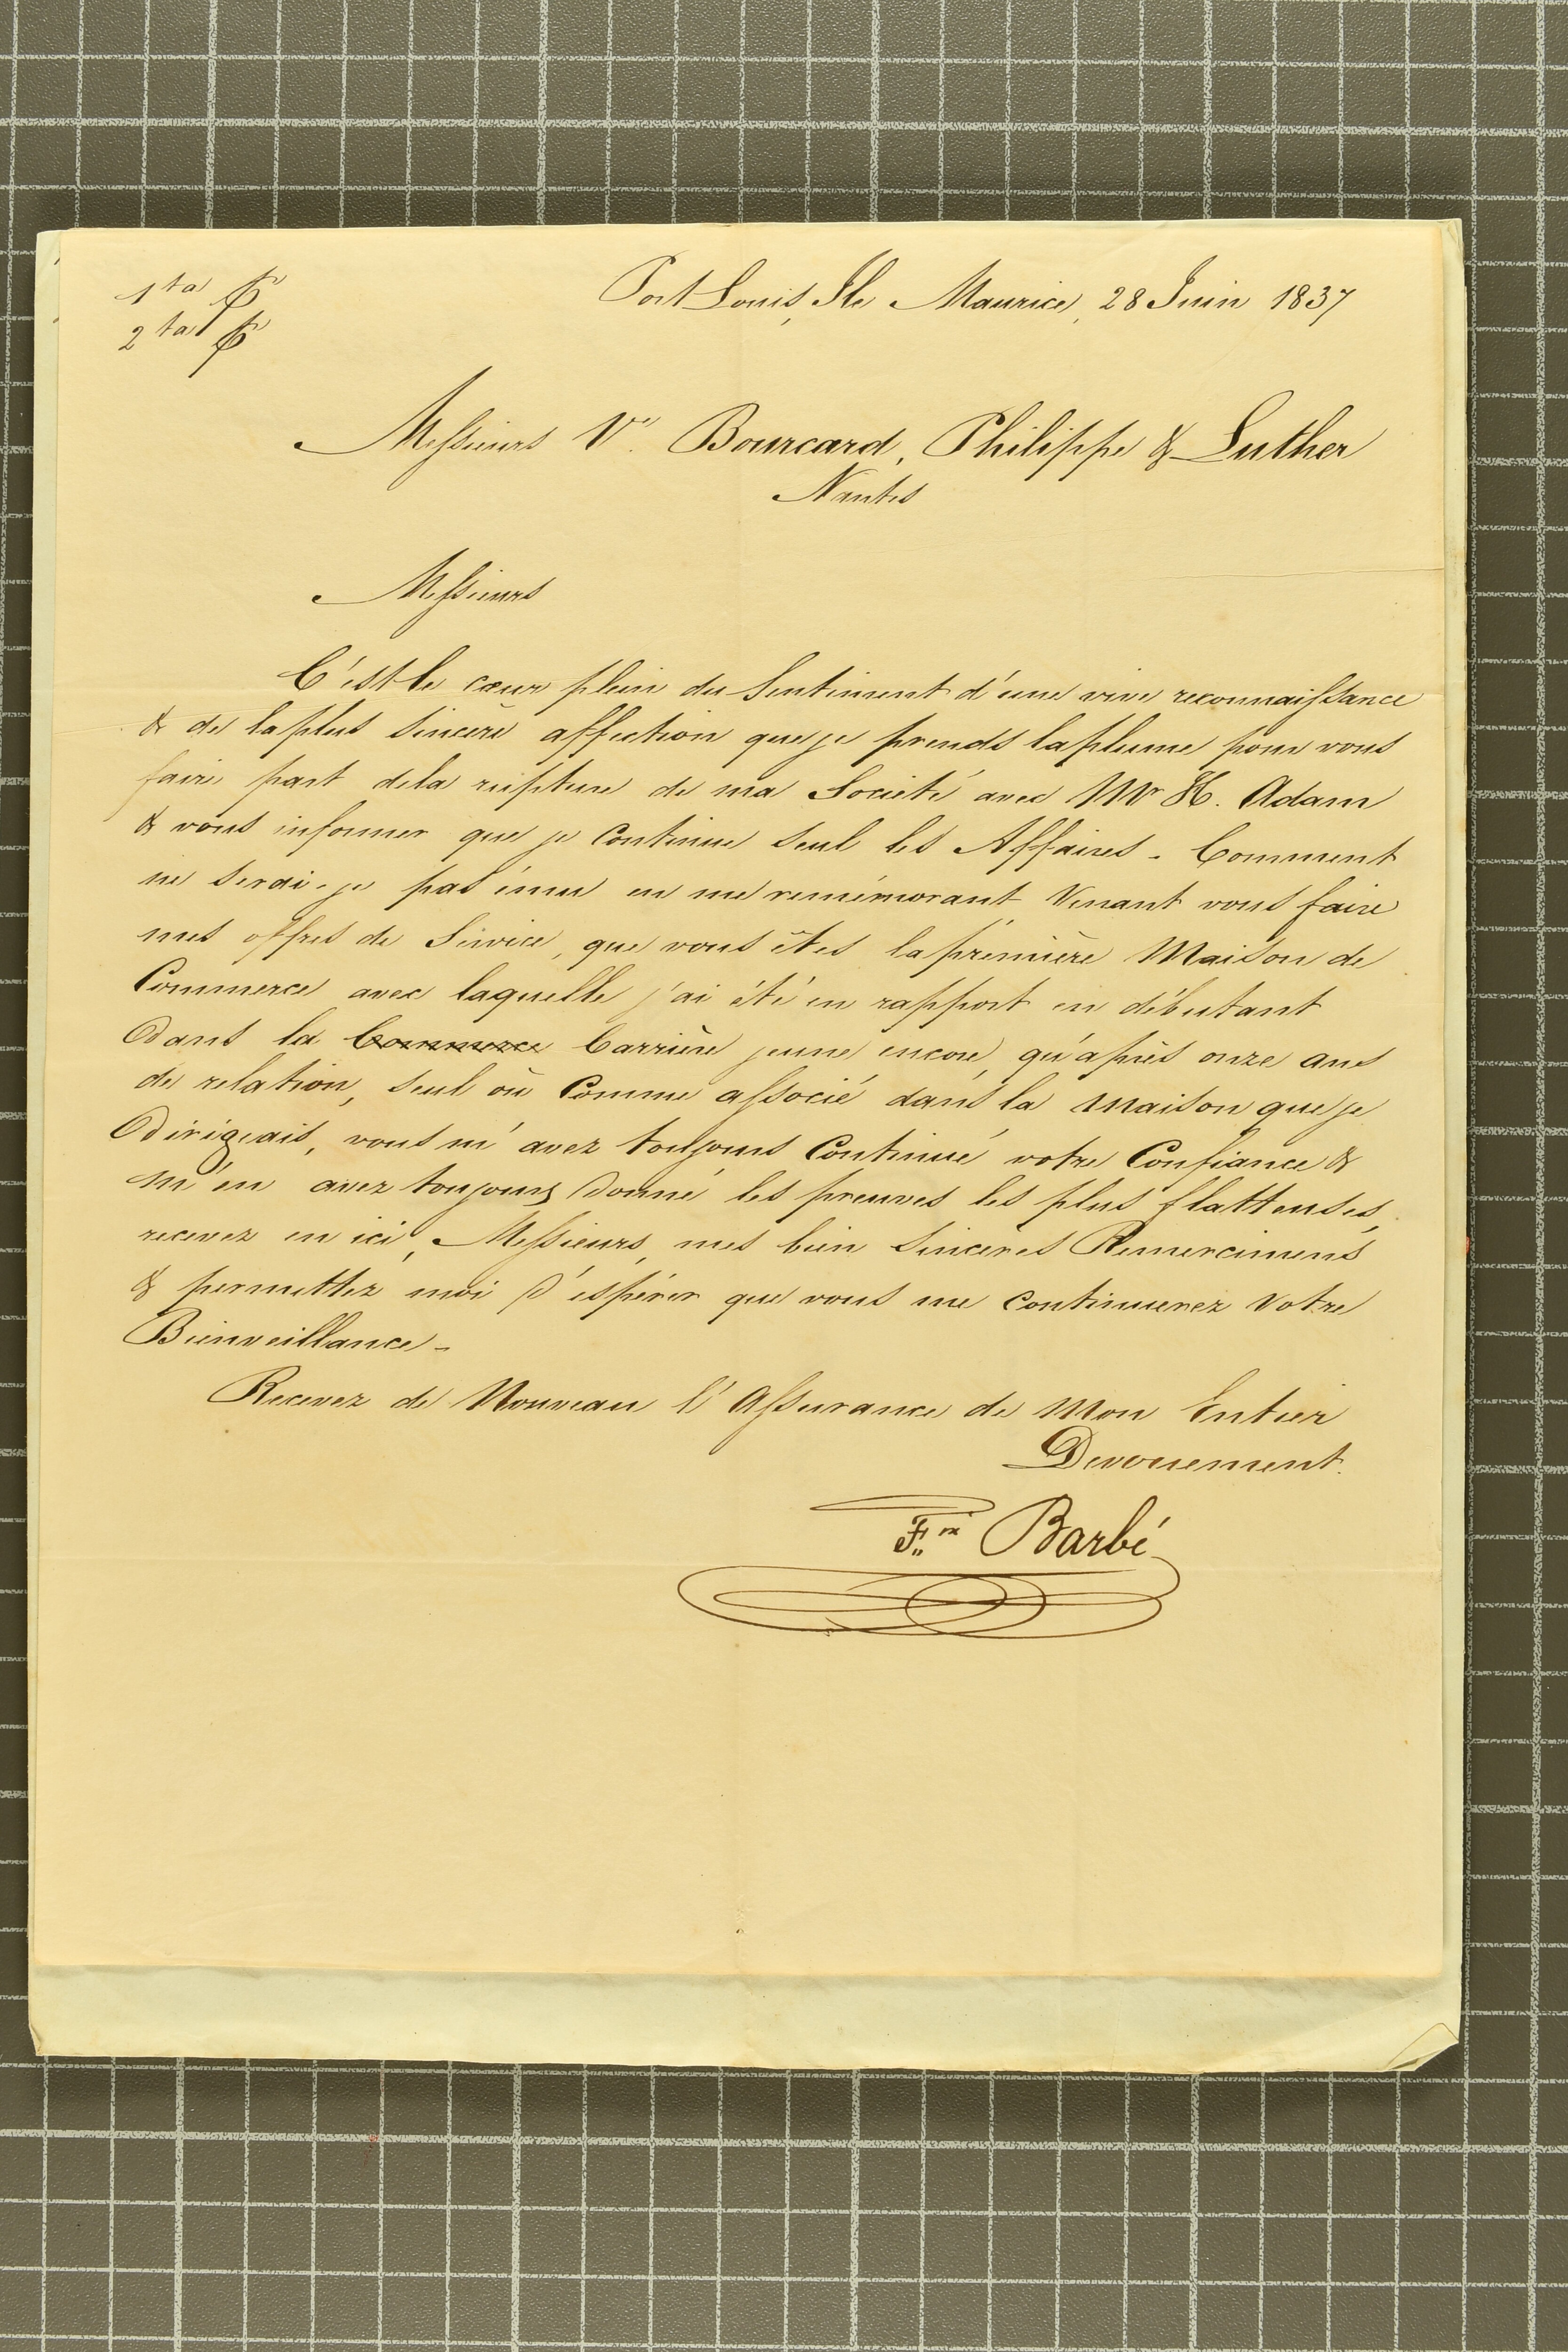 1ta
2ta
Port Louis, Ile Maurice, 28 Juin 1837
Messieurs Ve. Bourcard, Philippe & Luther
Nantes
Messieurs
C'est le cœur plein du Sentiment d'une vive reconnaissance
& de la plus sincère affection que je prends la plume pour vous
faire part de la rupture de ma Société avec Mr H. Adam
& vous informer que je Continue Seul les Affaires - Comment
ne serai-je pas ému en me remémorant, Venant vous faire
mes offres de Service, que vous êtes la première Maison de
Commerce avec laquelle j'ai été en rapport en débutant
Dans la Commerce Carrière jeune encore, qu'après onze ans
de relation, Seul où Comme associé dans la Maison que je
Dirigeais, vous m'avez toujours Continué votre Confiance &
m'en avez toujours Donné les preuves les plus flatteuses,
recevez en ici, Messieurs, mes bien Sinceres Remercimens
& permettez moi D'espérer que vous me Continuerez Votre
Bienveillance -
Recevez de Nouveau l'Assurance de Mon Entier
Devouement.
Barbé